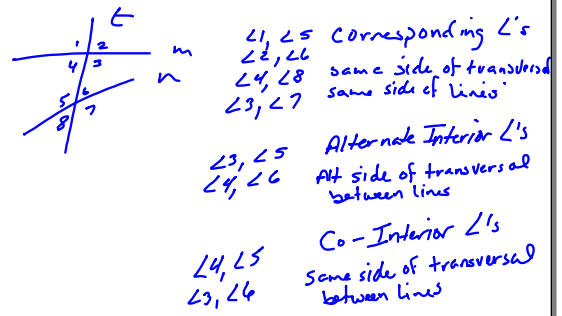 t
1 2
m
4 3
n
5 6
8 7
∠1, ∠5 Corresponding ∠'s
∠2, ∠6
∠4, ∠8 same side of transversal
∠3, ∠7 same side of lines
Alternate Interior ∠'s
∠3, ∠5
∠4, ∠6 Alt side of transversal
between lines
Co-Interior ∠'s
∠4, ∠5 same side of transversal
∠3, ∠6 between lines